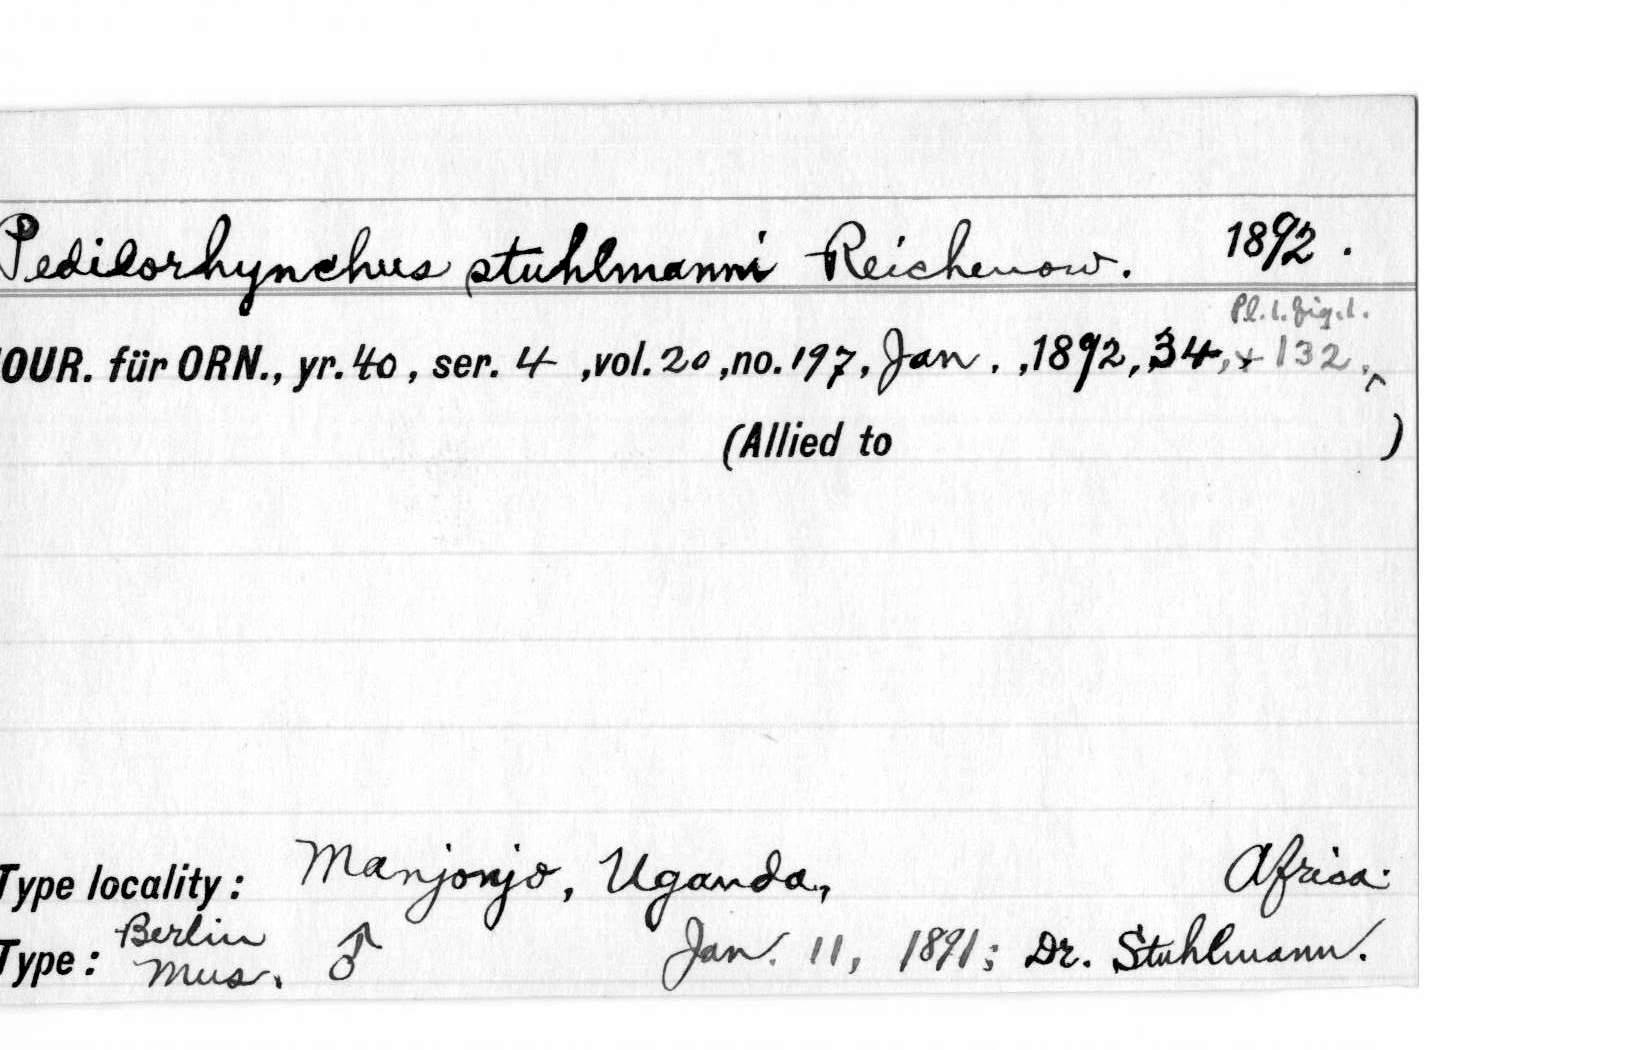 Pedilorhynchus stuhlmanni Reichenow. 1892.
Pl. 1. fig. 1.
OUR. für ORN., yr. 40, ser. 4 ,vol. 20 ,no. 197, Jan. ,1892, 34, + 132.
(Allied to )
Type locality: Manjonjo, Uganda, Africa.
Type: Berlin Mus. ♂ Jan. 11, 1891; Dr. Stuhlmann.